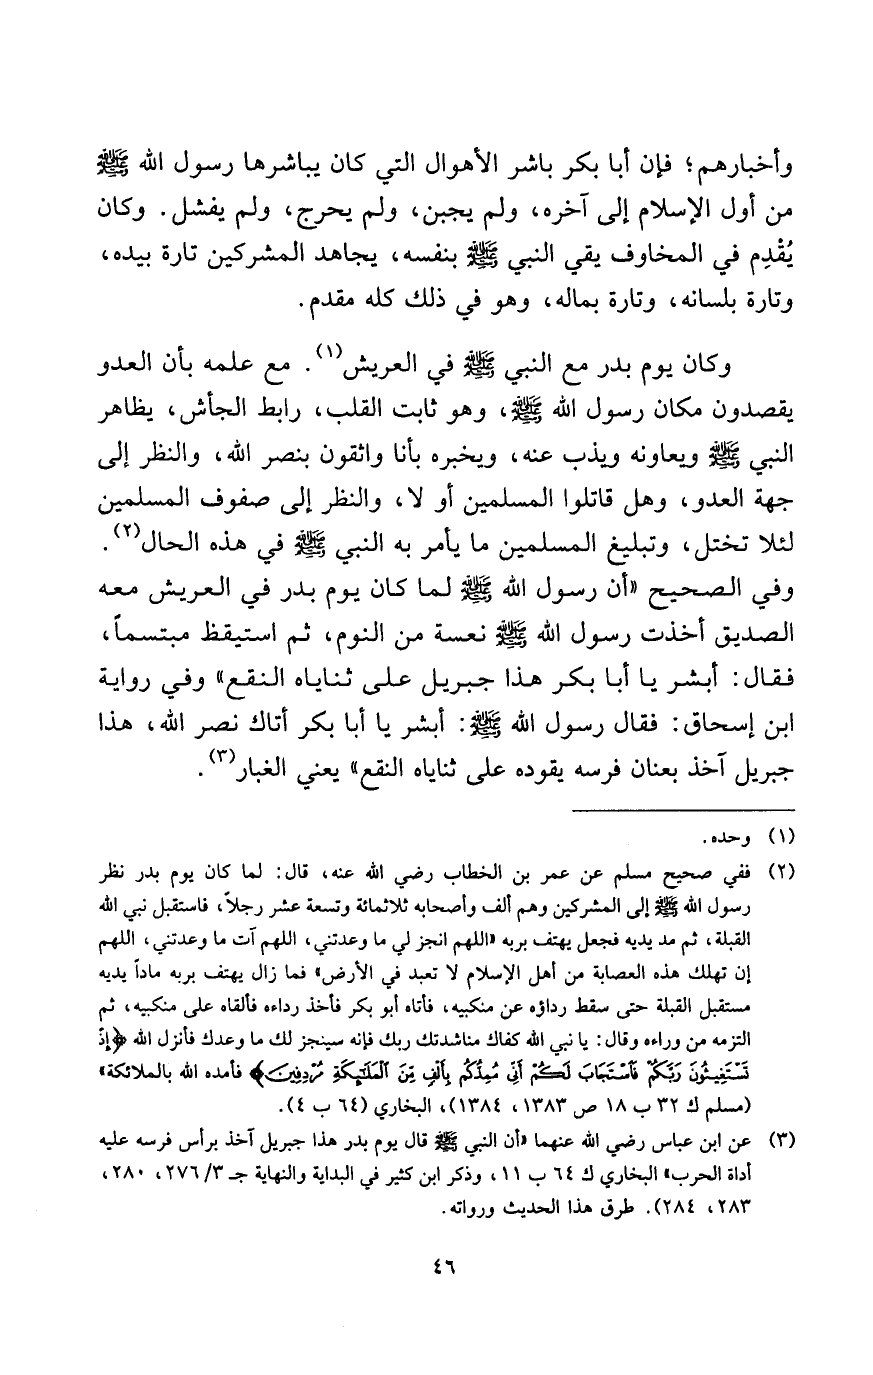 وأخبارهم؛ فإن أبا بكر باشر الأهوال التي كان يباشرها رسول الله ﷺ
من أول الإسلام إلى آخره، ولم يجبن، ولم يحرج، ولم يفشل. وكان
يُقْدِم في المخاوف يقي النبي ﷺ بنفسه، يجاهد المشركين تارة بيده،
وتارة بلسانه، وتارة بماله، وهو في ذلك كله مقدم.
وكان يوم بدر مع النبي ﷺ في العريش(١). مع علمه بأن العدو
يقصدون مكان رسول الله ﷺ، وهو ثابت القلب، رابط الجأش، يظاهر
النبي ﷺ ويعاونه ويذب عنه، ويخبره بأنا واثقون بنصر الله، والنظر إلى
جهة العدو، وهل قاتلوا المسلمين أو لا، والنظر إلى صفوف المسلمين
لئلا تختل، وتبليغ المسلمين ما يأمر به النبي ﷺ في هذه الحال(٢).
وفي الصحيح «أن رسول الله ﷺ لما كان يوم بدر في العريش معه
الصديق أخذت رسول الله ﷺ نعسة من النوم، ثم استيقظ مبتسماً،
فقال: أبشر يا أبا بكر هذا جبريل على ثناياه النقع» وفي رواية
ابن إسحاق: فقال رسول الله ﷺ: أبشر يا أبا بكر أتاك نصر الله، هذا
جبريل آخذ بعنان فرسه يقوده على ثناياه النقع» يعني الغبار(٣).
(١) وحده.
(٢) ففي صحيح مسلم عن عمر بن الخطاب رضي الله عنه، قال: لما كان يوم بدر نظر
رسول الله ﷺ إلى المشركين وهم ألف وأصحابه ثلاثمائة وتسعة عشر رجلاً، فاستقبل نبي الله
القبلة، ثم مد يديه فجعل يهتف بربه «اللهم انجز لي ما وعدتني، اللهم آت ما وعدتني، اللهم
إن تهلك هذه العصابة من أهل الإسلام لا تعبد في الأرض» فما زال يهتف بربه ماداً يديه
مستقبل القبلة حتى سقط رداؤه عن منكبيه، فأتاه أبو بكر فأخذ رداءه فألقاه على منكبيه، ثم
التزمه من وراءه وقال: يا نبي الله كفاك مناشدتك ربك فإنه سينجز لك ما وعدك فأنزل الله ﴿إِذْ
تَسْتَغِيثُونَ رَبَّكُمْ فَاسْتَجَابَ لَكُمْ أَنِّي مُمِدُّكُم بِأَلْفٍ مِّنَ الْمَلَائِكَةِ مُرْدِفِينَ﴾ فأمده الله بالملائكة»
(مسلم ك ٣٢ ب ١٨ ص ١٣٨٣، ١٣٨٤)، البخاري (٦٤ ب ٤).
(٣) عن ابن عباس رضي الله عنهما «أن النبي ﷺ قال يوم بدر هذا جبريل آخذ برأس فرسه عليه
أداة الحرب» البخاري ك ٦٤ ب ١١، وذكر ابن كثير في البداية والنهاية جـ ٣/ ٢٧٦، ٢٨٠،
٢٨٣، ٢٨٤). طرق هذا الحديث ورواته.
٤٦